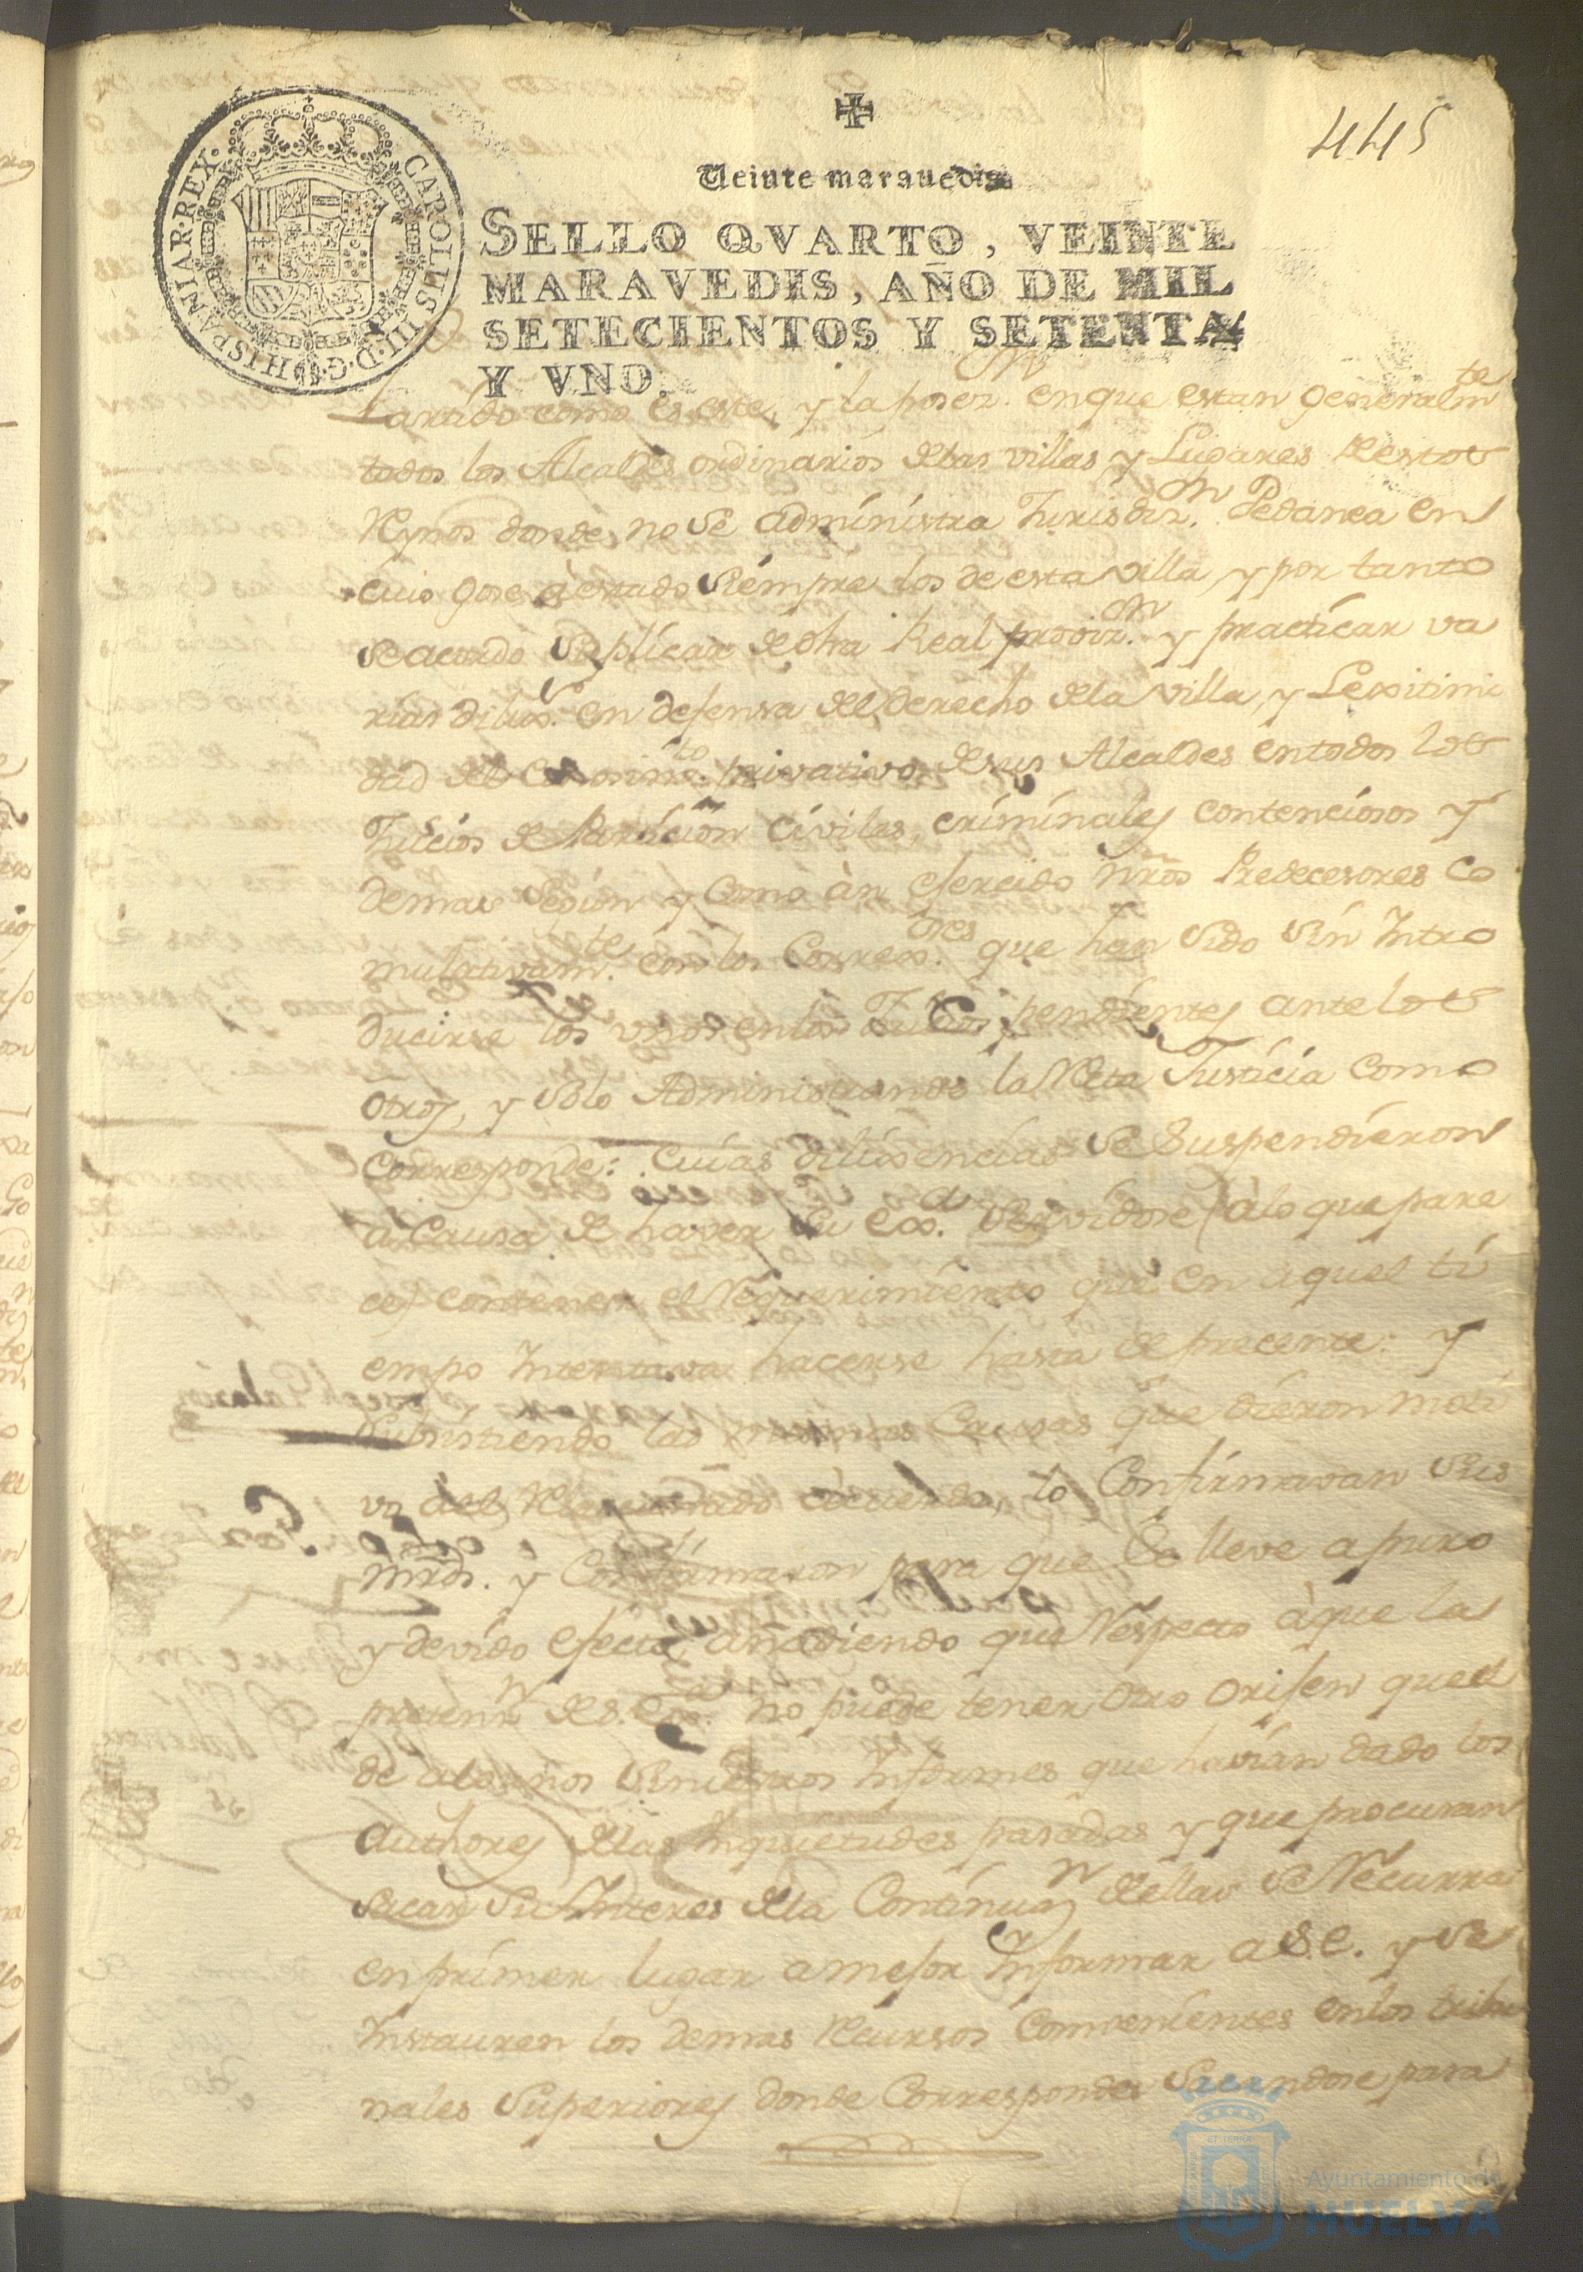 445
CAROLUS III·D·G·HISPANIAR·REX·
Veinte marauedis
SELLO QVARTO, VEINTE
MARAVEDIS, AÑO DE MIL
SETECIENTOS Y SETENTA
Y VNO.
Partido como es este, y la poseon. en que estan generalmte
todos los Alcaldes ordinarios de las villas y Lugares de estos
Reynos donde no se administra Jurisdizon. Pedanea en
cuio gose à estado siempre los de esta villa, y por tanto
se acordo suplicar de dha Real provizon. y practicar va
rias dilixs. en defensa del derecho de la villa, y Lexitimi
dad del Conosimto. privativo de sus Alcaldes en todos los
Juicios de Particion Civiles, criminales contenciosos y
demas segun y como àn esercido nros Predecesores co
mulativamte. con los Correxres. que han sido sin Intro
ducirse los vnos en los Juicios pendientes ante los
otros, y solo Administrando la Recta Justicia como
corresponde: Cuias dilixencias se suspendieron
a causa de haver su Exa. servidose (a lo que pare
ce) contener el Requerimiento que en aquel ti
empo Intentava hacerse hasta el precente: y
subsistiendo las mismas Causas que dieron moti
vo al acuerdo, lo Confirmavan sus
mrds. y Confirmaron para que se lleve a puro
y devido efecto, añadiendo que Respecto àque la
pretenn de S. Exa. no puede tener otro orijen que el
de algunos siniestros Informes que havian dado los
Authores de las Inquietudes pasadas y que procuran
sacar su Interes de la Continuan de ellas se Recurra
en primer lugar a mejor Informar a S.E. y se
Instauren los demas Recursos Convenientes en los tribu
nales superiores donde Corresponda para
Ayuntamiento de
HUELVA